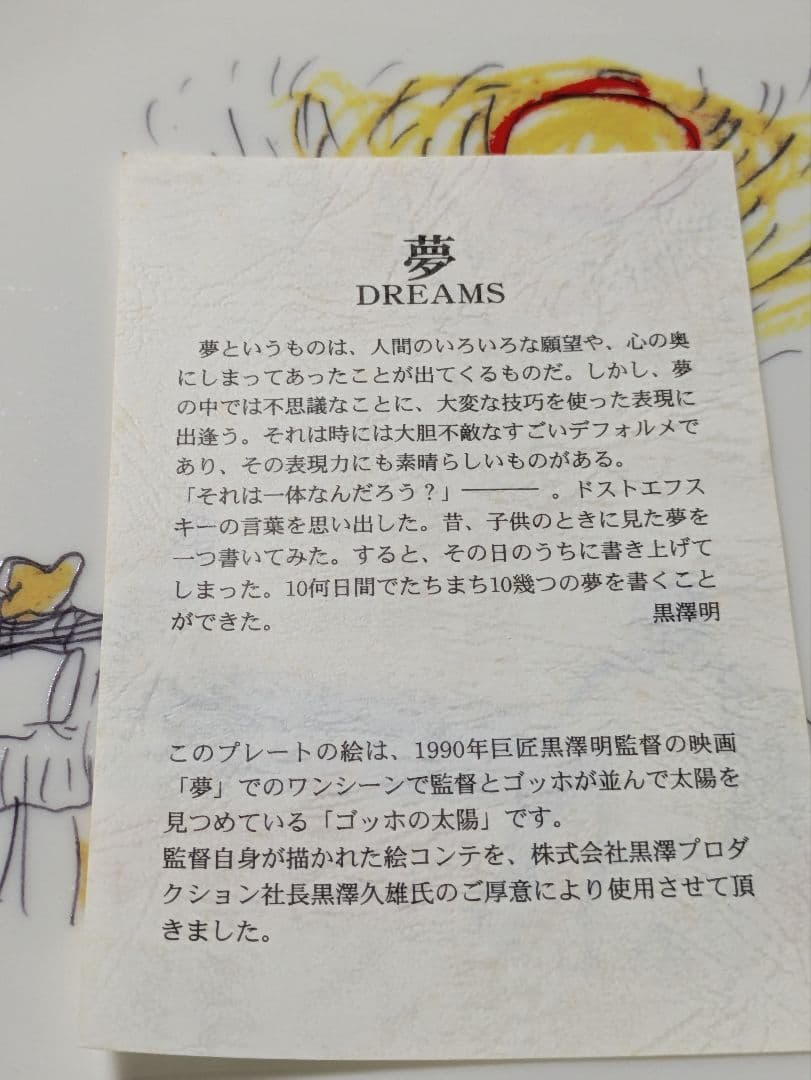 夢
DREAMS
夢というものは、人間のいろいろな願望や、心の奥
にしまってあったことが出てくるものだ。しかし、夢
の中では不思議なことに、大変な技巧を使った表現に
出逢う。それは時には大胆不敵なすごいデフォルメで
あり、その表現力にも素晴らしいものがある。
「それは一体なんだろう？」――― 。ドストエフス
キーの言葉を思い出した。昔、子供のときに見た夢を
一つ書いてみた。すると、その日のうちに書き上げて
しまった。10何日間でたちまち10幾つの夢を書くこと
ができた。 黒澤明
このプレートの絵は、1990年巨匠黒澤明監督の映画
「夢」でのワンシーンで監督とゴッホが並んで太陽を
見つめている「ゴッホの太陽」です。
監督自身が描かれた絵コンテを、株式会社黒澤プロダ
クション社長黒澤久雄氏のご厚意により使用させて頂
きました。